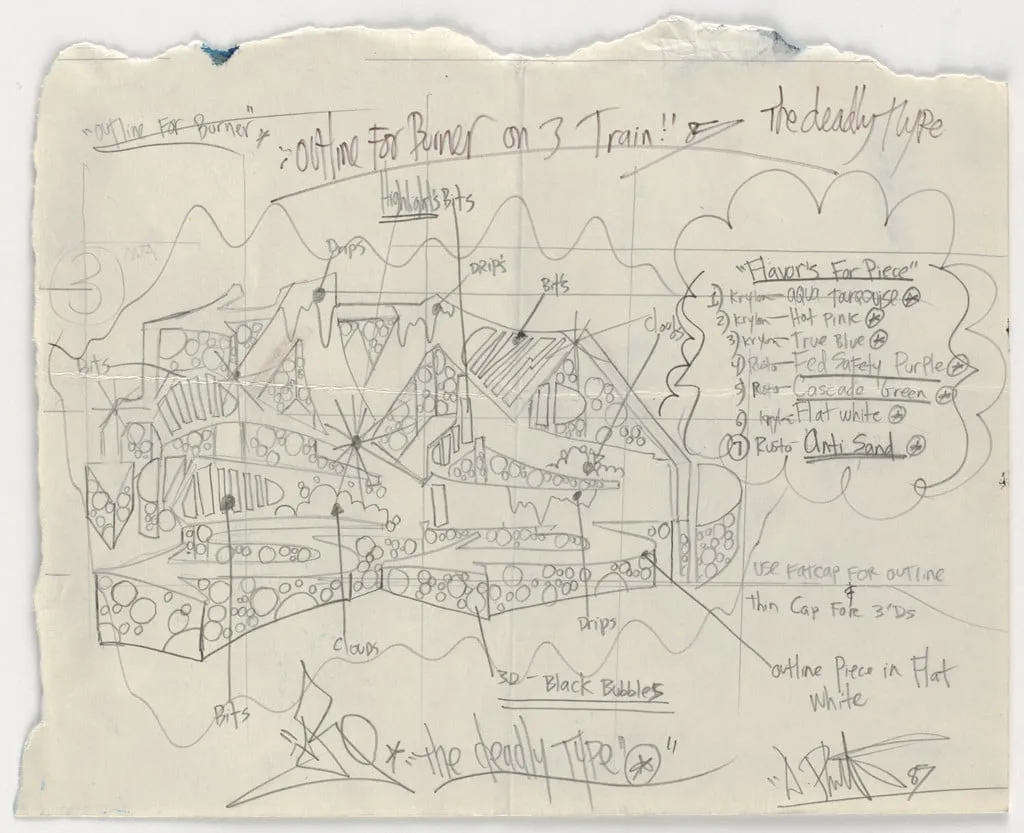 "outline For Burner"
"outline For Burner on 3 Train!! 87
The deadly Type
Highlights Bits
Drips
DRIP'S
Bits
Clouds
3
Bits
"Flavor's For Piece"
1) Krylon - aqua Tourqoise
2) Krylon - Hot Pink
3) Krylon - True Blue
4) Rusto - Fed Safety Purple
5) Rusto - Cascade Green
6) Krylon - Flat white
7) Rusto Anti Sand
USE FATCAP FOR OUTLINE
&
Thin Cap For 3'Ds
outline Piece in Flat
White
Drips
Clouds
3D - Black Bubbles
Bits
"the deadly Type"
87